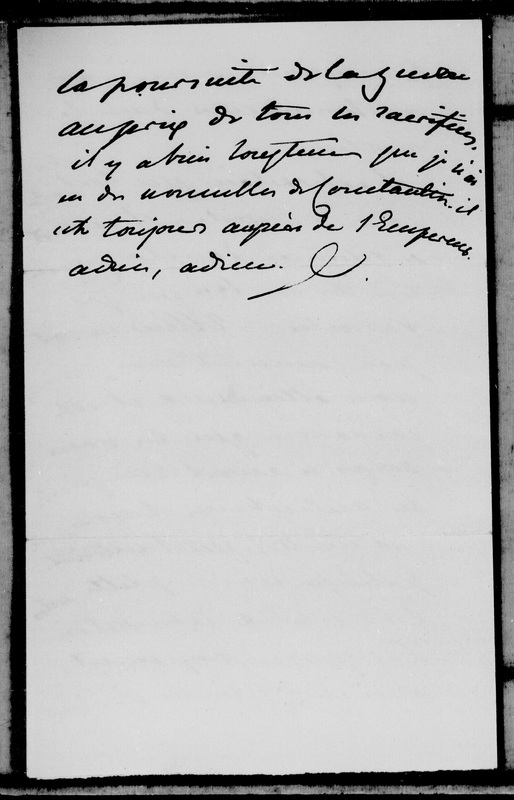 la poursuite de la guerre
au prix de tous les sacrifices.
il y a bien longtems que je n'ai
eu des nouvelles de Constantin. il
est toujours auprès de l'Empereur.
adieu, adieu.